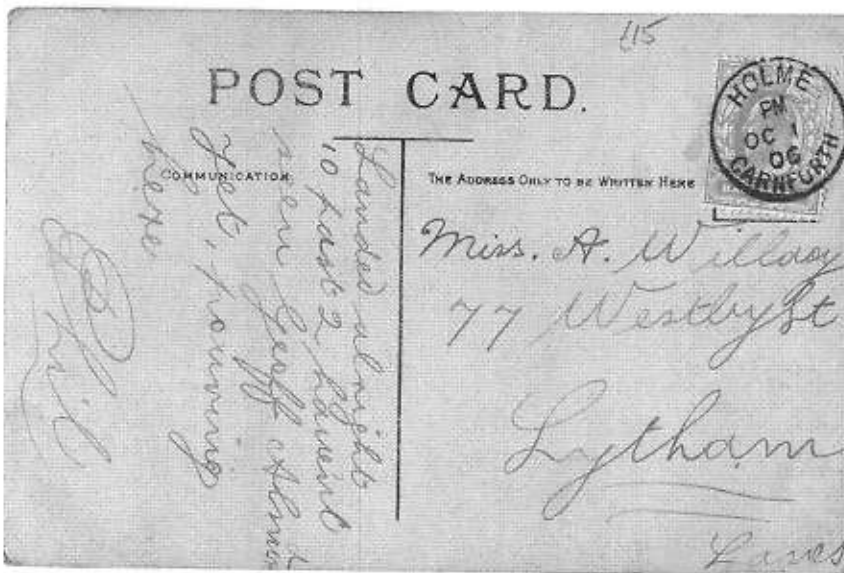 115
POST CARD.
HOLME
PM
OC 1
06
CARNFORTH
COMMUNICATION.
THE ADDRESS ONLY TO BE WRITTEN HERE
Landed alright
10 past 2 havent
seen Geoff
yet, pouring
here
Phil
Miss. A. Willacy
77 Westby St
Lytham
Lancs